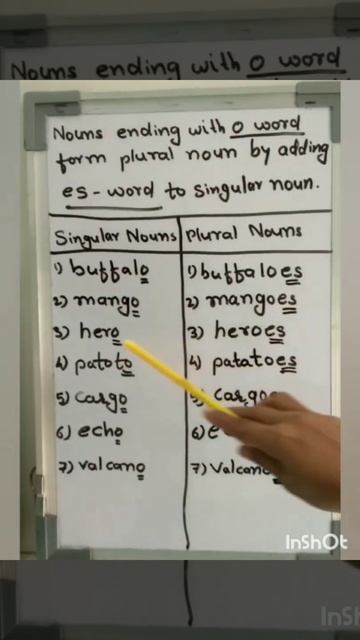 Nouns ending with o word
Nouns ending with o word
form plural noun by adding
es-word to singular noun.
Singular Nouns Plural Nouns
1) buffalo 1) buffaloes
2) mango 2) mangoes
3) hero 3) heroes
4) patoto 4) patatoes
5) cargo 5)
6) echo 6) e
7) valcano 7) Valcano
InShOt
InSh